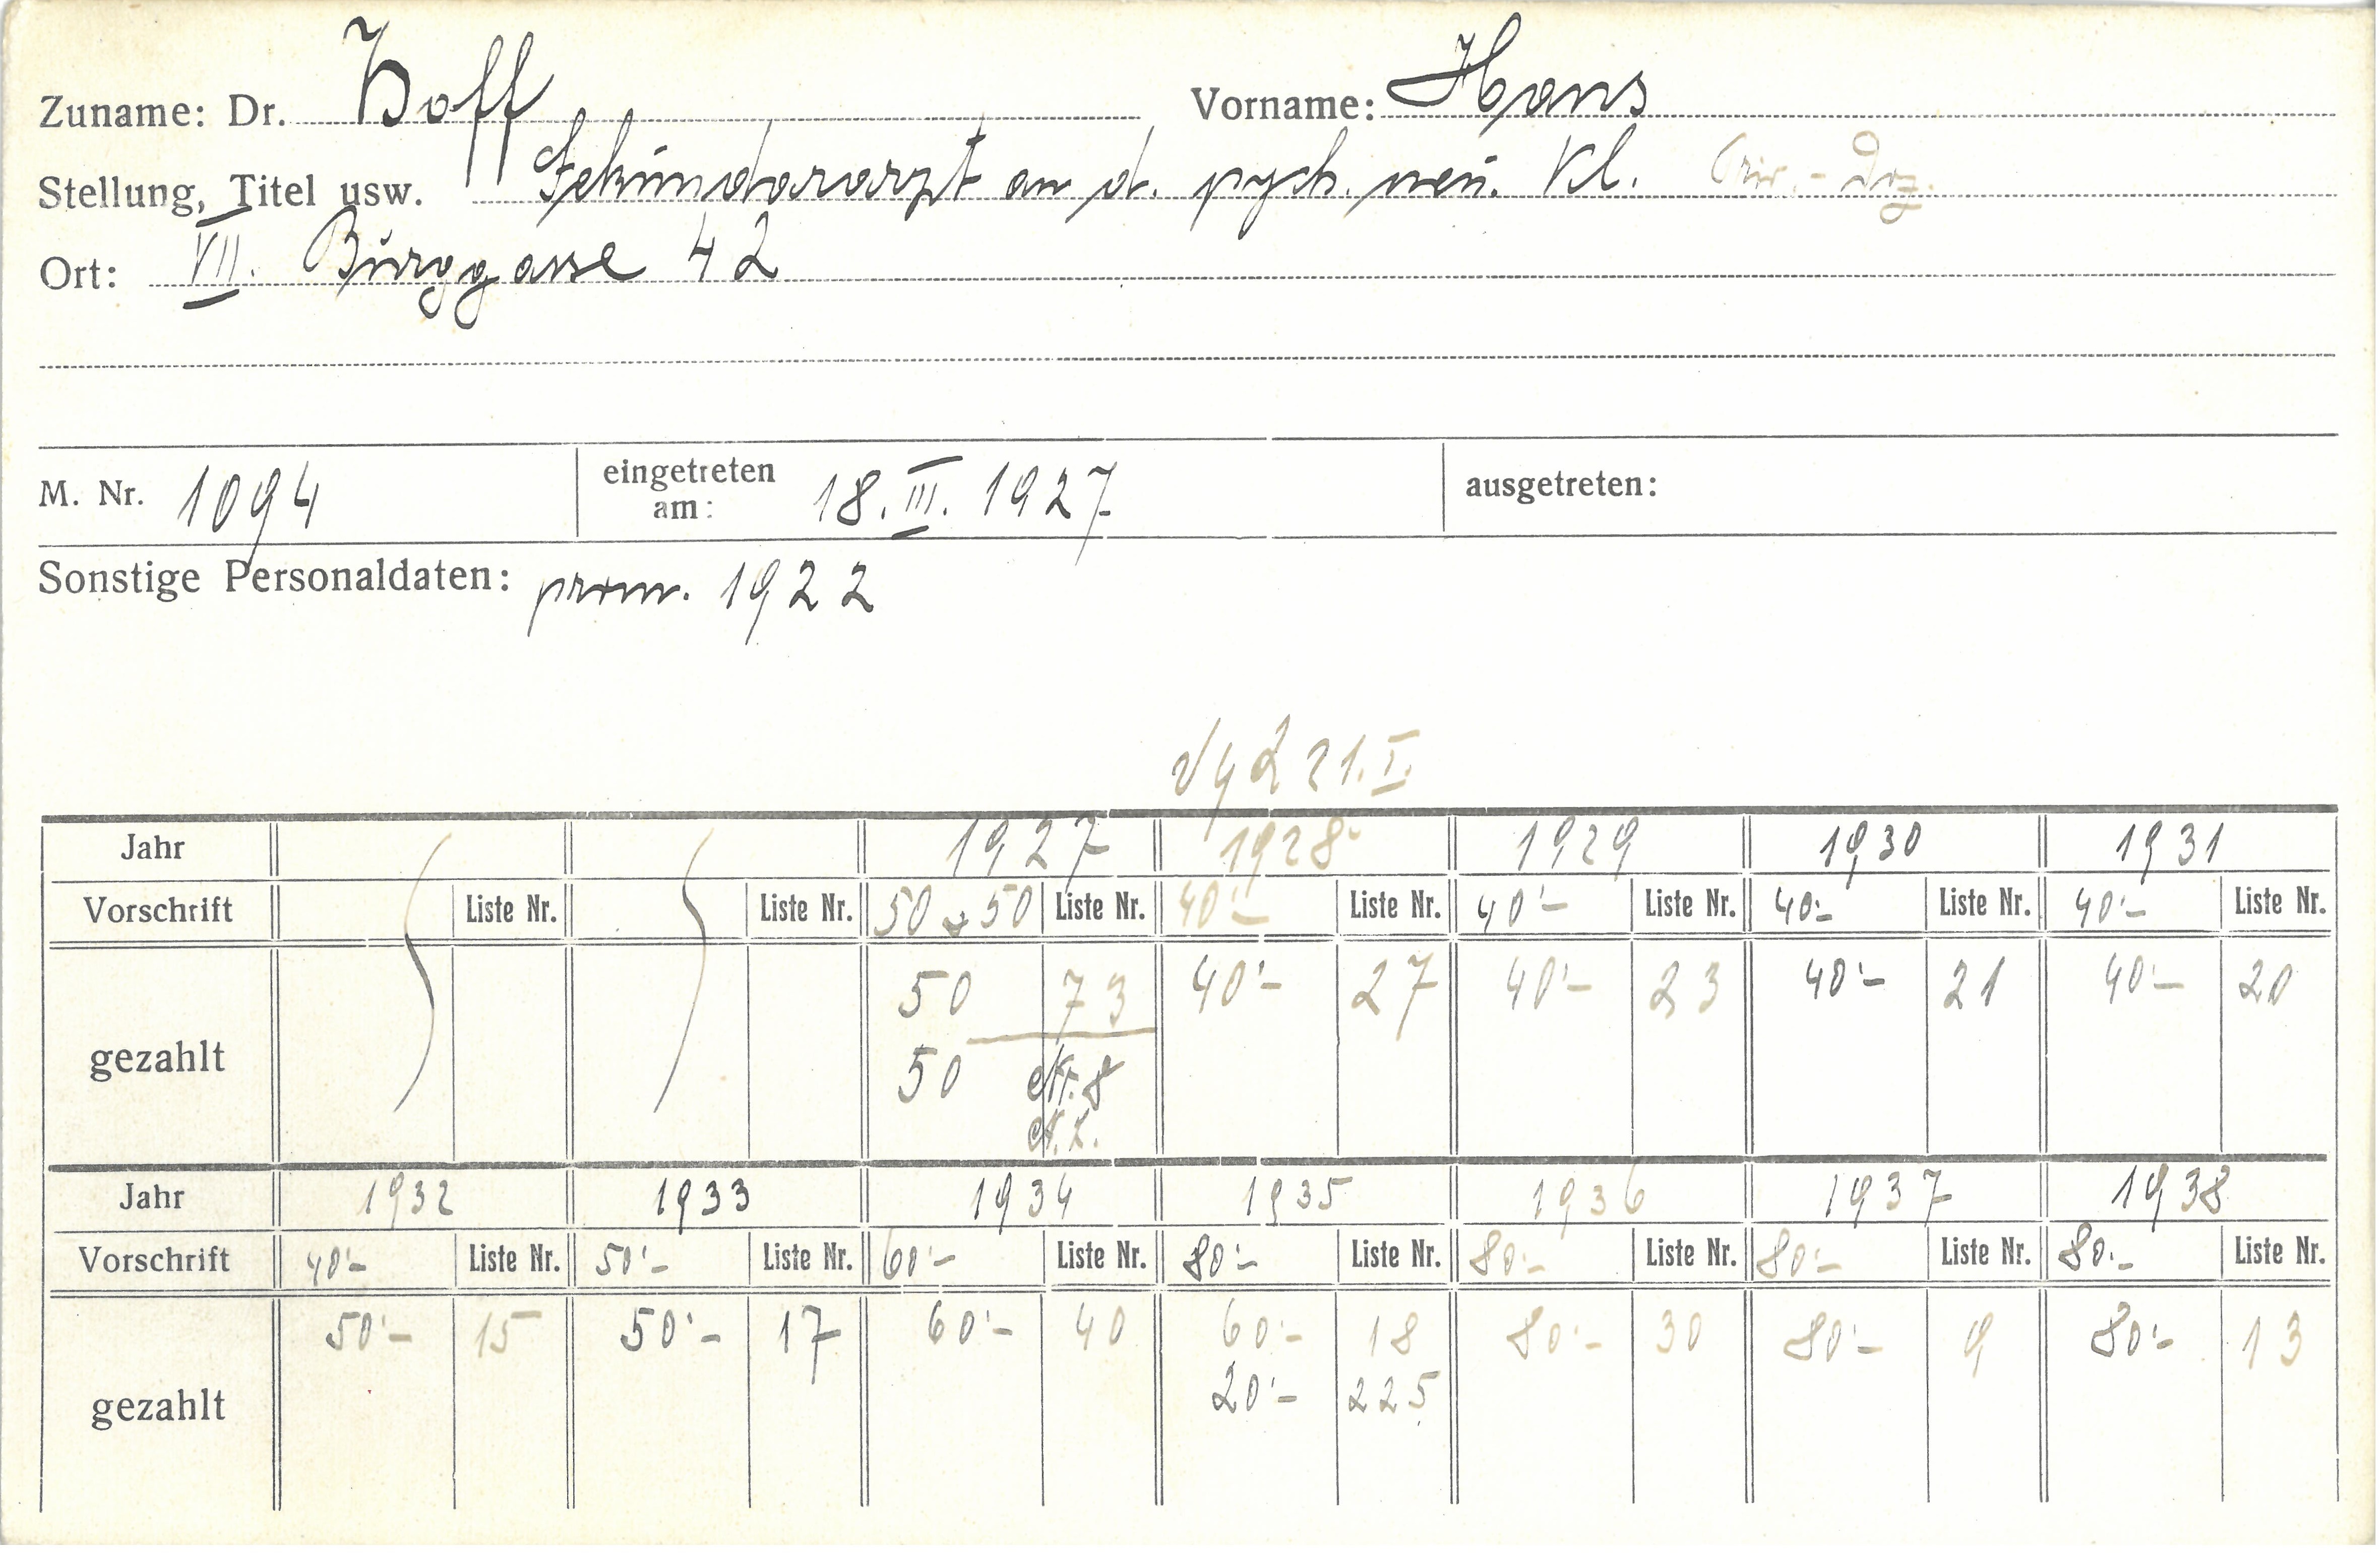 Zuname: Dr. Hoff Vorname: Hans
Stellung, Titel usw. Sekundararzt an d. psych. neu. Kl. Priv.-Doz.
Ort: VII. Burggasse 42
M. Nr. 1094 eingetreten am: 18. III. 1927 ausgetreten:
Sonstige Personaldaten: prom. 1922
21. I.
Jahr 1927 1928 1929 1930 1931
Vorschrift Liste Nr. Liste Nr. 50 + 50 Liste Nr. 40'- Liste Nr. 40'- Liste Nr. 40'- Liste Nr. 40'- Liste Nr.
gezahlt 50 73 40'- 27 40'- 23 40'- 21 40'- 20
50
Jahr 1932 1933 1934 1935 1936 1937 1938
Vorschrift 40'- Liste Nr. 50'- Liste Nr. 60'- Liste Nr. 80'- Liste Nr. 80'- Liste Nr. 80'- Liste Nr. 80'- Liste Nr.
gezahlt 50'- 15 50'- 17 60'- 40 60'- 18 80'- 30 80'- 9 80'- 13
20'- 225